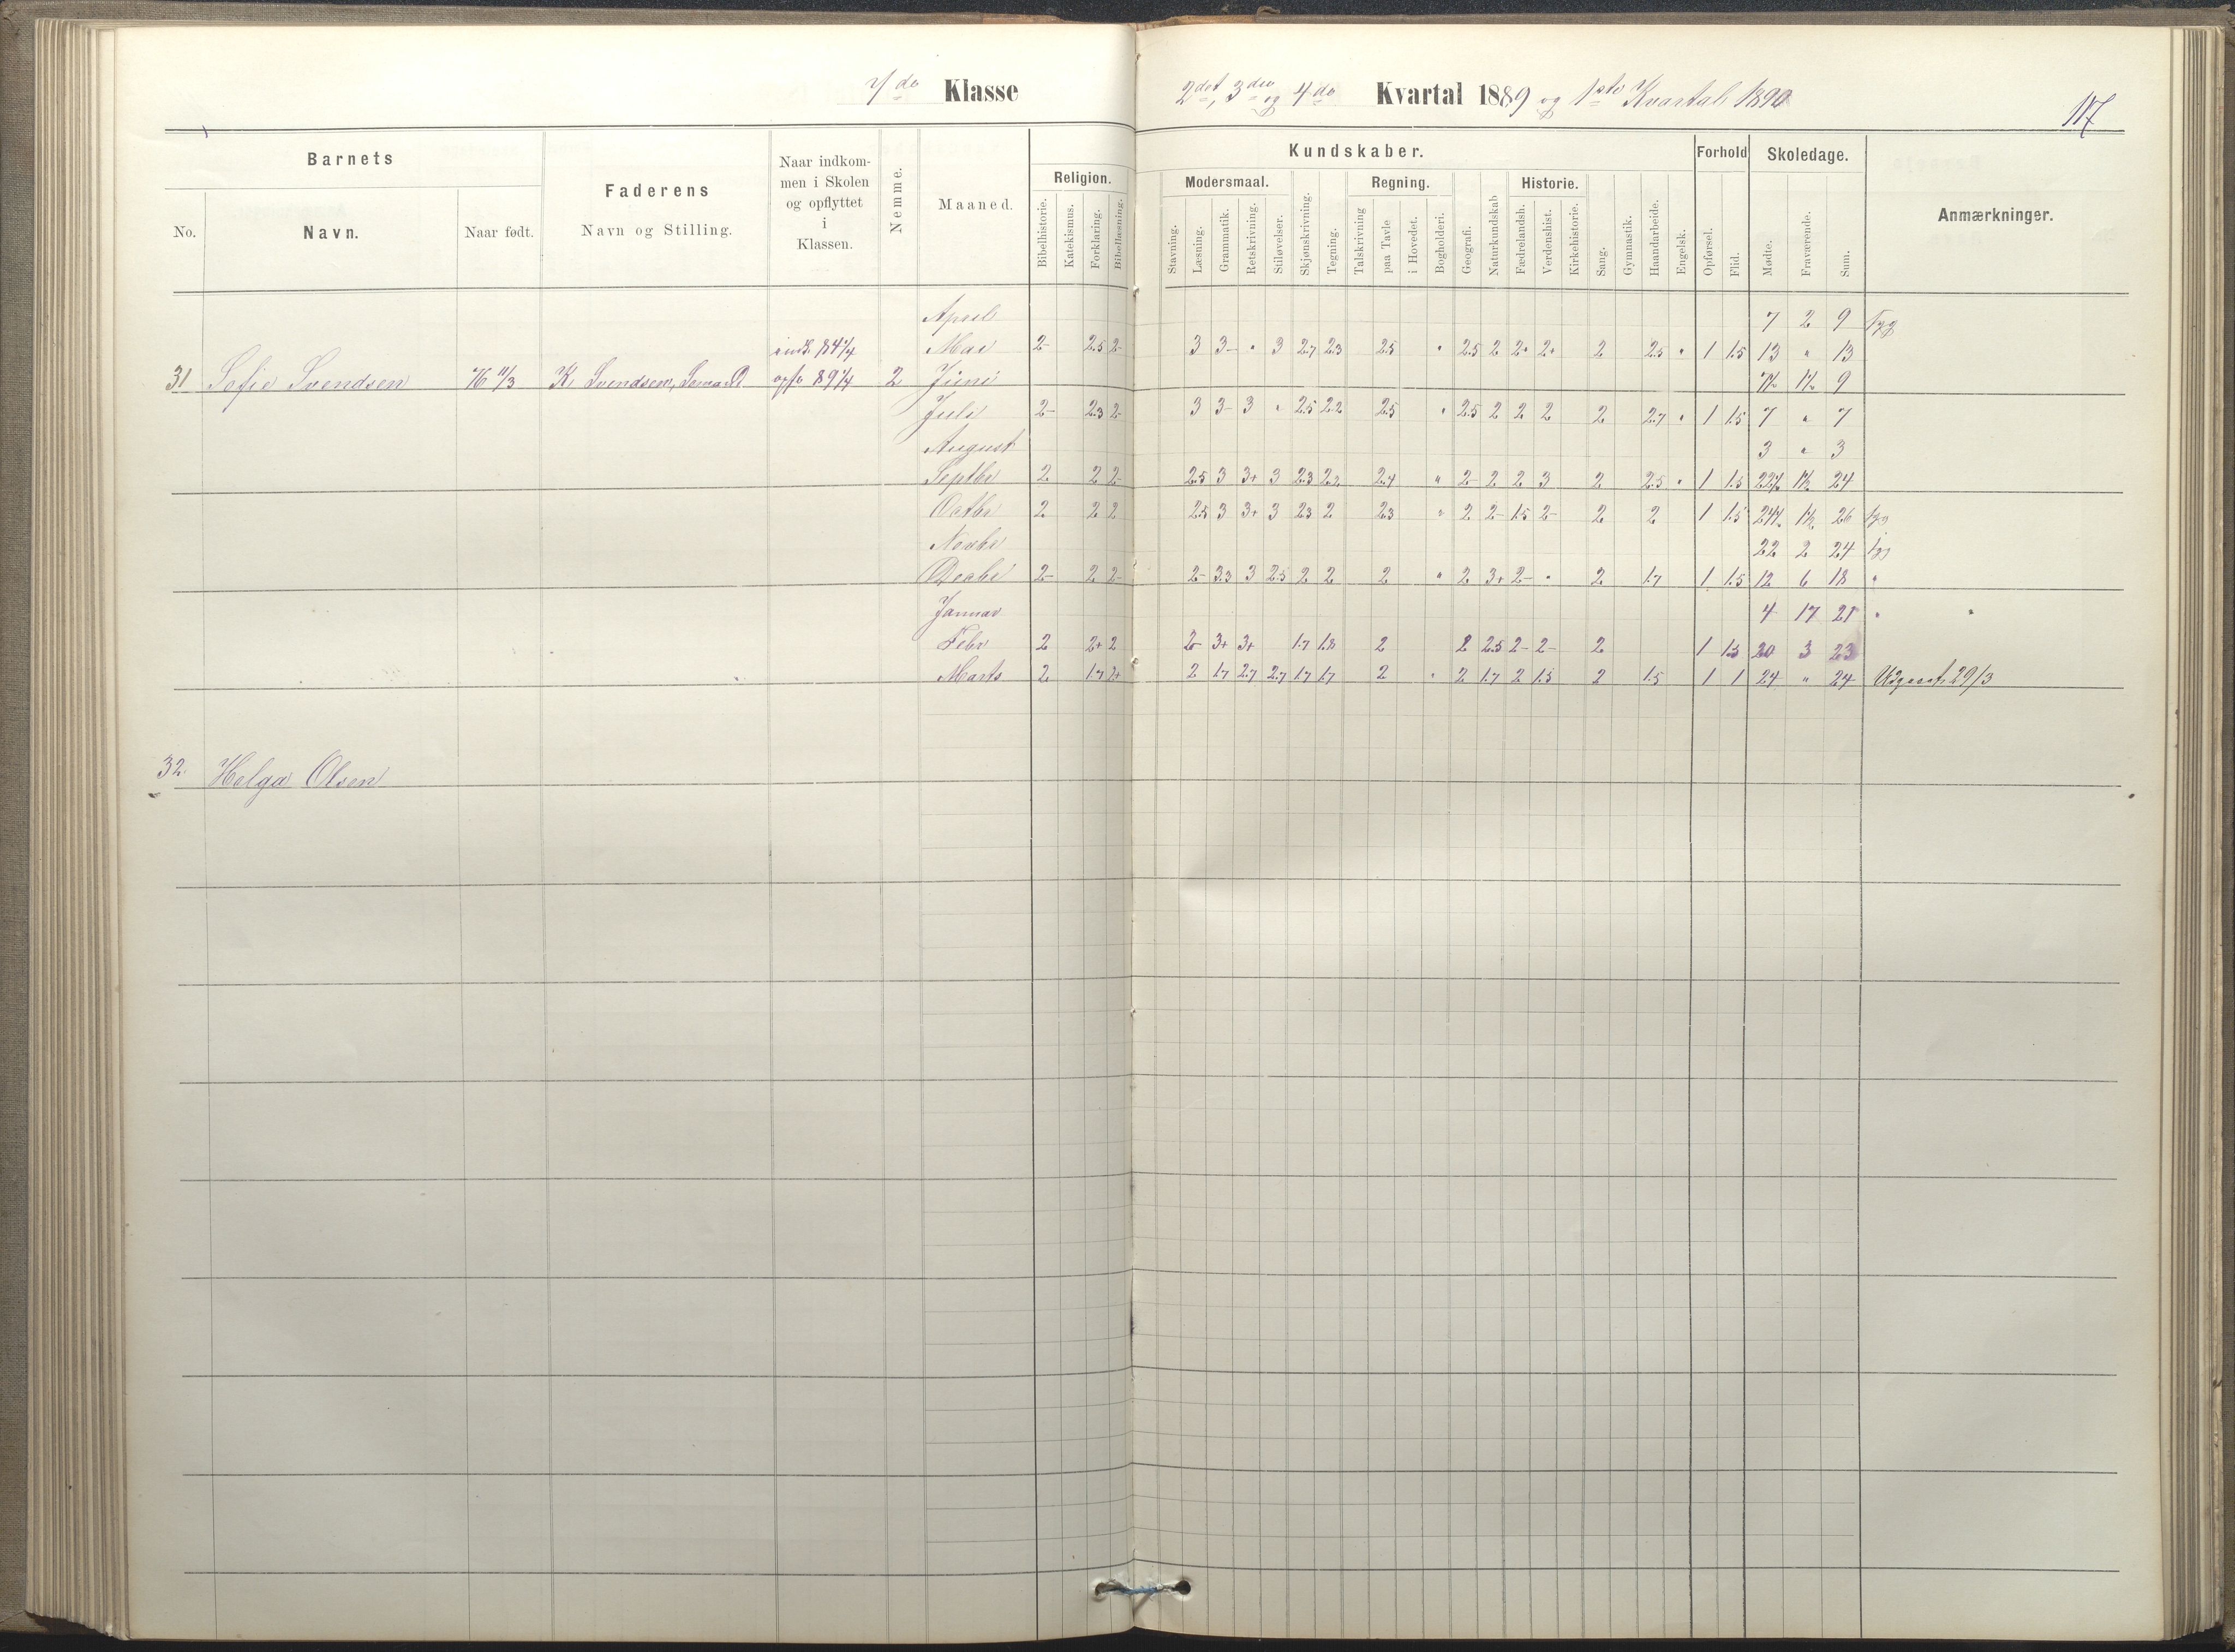 Klasse
2det, 3die og 4de Kvartal 1889 og 1ste Kvartal 1890
117
Barnets
Faderens
Naar indkommen i Skolen og opflyttet i Klassen.
Nemme.
Maaned.
Kundskaber.
Forhold
Skoledage.
Anmærkninger.
No.
Navn.
Naar født.
Navn og Stilling.
Religion.
Modersmaal.
Regning.
Historie.
Bibelhistorie.
Katekismus.
Forklaring.
Bibellæsning.
Stavning.
Læsning.
Grammatik.
Retskrivning.
Stiløvelser.
Skjønskrivning.
Tegning.
Talskrivning
paa Tavle
i Hovedet.
Bogholderi.
Geografi.
Naturkundskab
Fædrelandsh.
Verdenshist.
Kirkehistorie.
Sang.
Gymnastik.
Haandarbeide.
Engelsk.
Opførsel.
Flid.
Mødte.
Fraværende.
Sum.
April 7 2 9 syg
indk. 84 1/4 Mai 2- 2.5 2- 3 3- " 3 2.7 2.3 2.5 " 2.5 2 2+ 2+ 2 2.5 " 1 1.5 13 " 13
31 Sofie Svendsen 76 11/3 K. Svendsen, Sømand opfl. 89 1/4 2 Juni 7½ 1½ 9
Juli 2- 2.3 2- 3 3- 3 " 2.5 2.2 2.5 " 2.5 2 2 2 2 2.7 " 1 1.5 7 " 7
August 3 " 3
Septbr 2 2 2- 2.5 3 3+ 3 2.3 2.2 2.4 " 2- 2 2 3 2 2.5 " 1 1.5 22½ 1½ 24
Octbr 2 2 2 2.5 3 3+ 3 2.3 2 2.3 " 2 2- 1.5 2- 2 2 1 1.5 24½ 1½ 26 syg
Novbr 22 2 24 syg
Decbr 2- 2 2- 2- 3.3 3 2.5 2 2 2 " 2 3+ 2- " 2 1.7 1 1.5 12 6 18 "
Januar 4 17 21 " "
Febr 2 2+ 2 2- 3+ 3+ 1.7 1.8 2 2 2.5 2- 2- 2 1 1.5 20 3 23
Marts 2 1.7 2+ 2 1.7 2.7 2.7 1.7 1.7 2 " 2 1.7 2 1.5 2 1.5 1 1 24 " 24 Udgaat 29/3
32. Helga Olsen